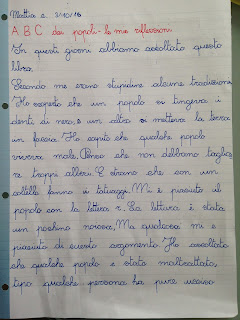 Mattia e. 3/10/16
A B C dei popoli - le mie riflessioni
In questi giorni abbiamo ascoltato questo
libro.
Secondo me erano stupidine alcune tradizioni
Ho scoperto che un popolo si tingeva i
denti di nero, e un altro si metteva la terra
in faccia. Ho saputo che qualche popolo
viveva male. Penso che non debbano taglia
re troppi alberi. E strano che con un
coltello fanno i tatuaggi. Mi è piaciuto il
popolo con la lettera r. La lettura è stata
un pochino noiosa, Ma qualcosa mi è
piaciuto di questo argomento. Ho ascoltato
che qualche popolo è stato maltrattato,
tipo qualche persona ha pure ucciso